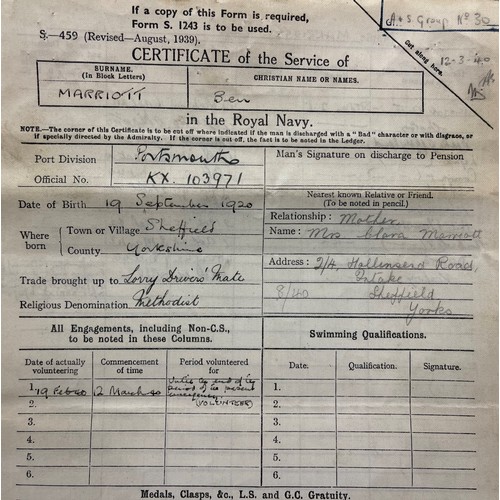 If a copy of this Form is required,
Form S. 1243 is to be used.
S.—459 (Revised—August, 1939).
A & S Group No 30
Cut along here.
12-3-40
CERTIFICATE of the Service of
SURNAME.
(In Block Letters)
CHRISTIAN NAME OR NAMES.
MARRIOTT
Ben
in the Royal Navy.
NOTE.—The corner of this Certificate is to be cut off where indicated if the man is discharged with a "Bad" character or with disgrace, or
if specially directed by the Admiralty. If the corner is cut off, the fact is to be noted in the Ledger.
Port Division
Portsmouth
Official No.
KX. 103971
Man's Signature on discharge to Pension
Date of Birth 19 September 1920
Where born
Town or Village Sheffield
County Yorkshire
Trade brought up to Lorry Drivers' Mate
Religious Denomination Methodist
Nearest known Relative or Friend.
(To be noted in pencil.)
Relationship: Mother
Name: Mrs Clara Marriott
Address: 2/4 Hollinsend Road
Intake
8/40 Sheffield
Yorks
All Engagements, including Non-C.S.,
to be noted in these Columns.
Date of actually
volunteering
Commencement
of time
Period volunteered
for
1. 19 Feb 40
12 March 40
Until the end of the
period of the present
emergency
(VOLUNTEER)
2.
3.
4.
5.
6.
Swimming Qualifications.
Date.
Qualification.
Signature.
1.
2.
3.
4.
5.
6.
Medals, Clasps, &c., L.S. and G.C. Gratuity.